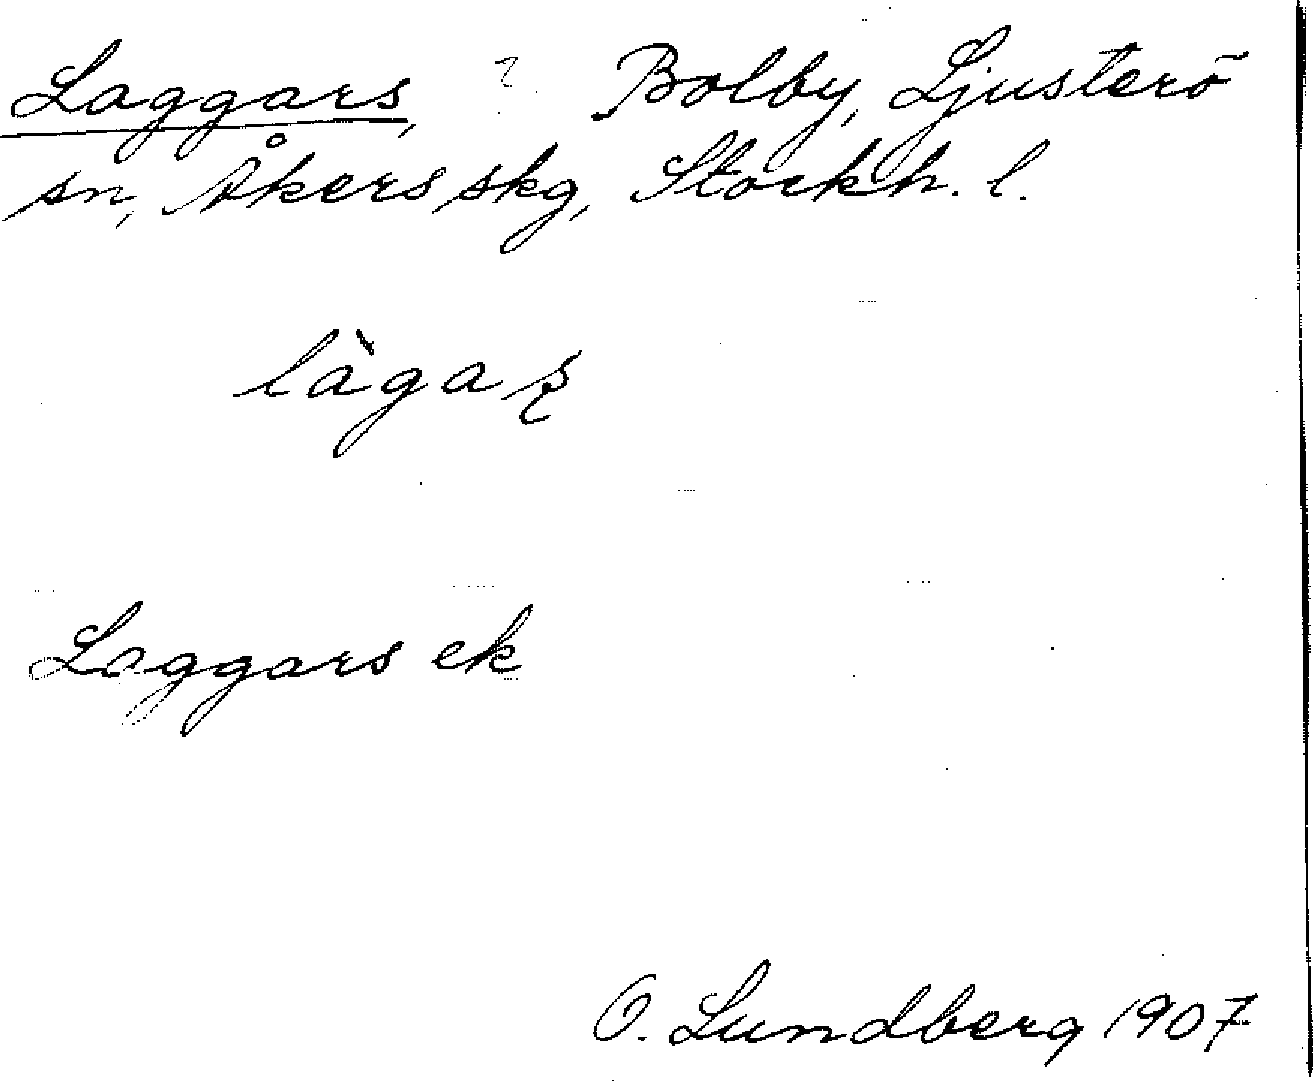 Laggars, ? Bolby, Ljusterö
sn, Åkers skg, Stockh. l.
làgaʂ
Laggars ek
O. Lundberg 1907